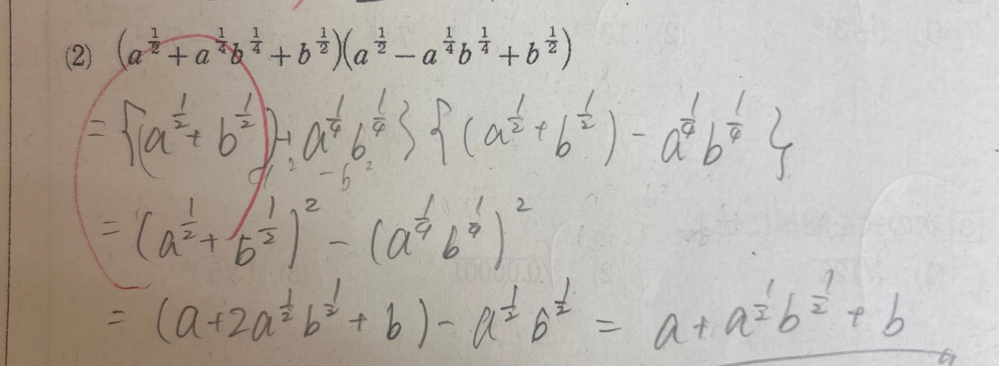 (2) (a^{1/2} + a^{1/4}b^{1/4} + b^{1/2})(a^{1/2} − a^{1/4}b^{1/4} + b^{1/2})
= {(a^{1/2} + b^{1/2}) + a^{1/4}b^{1/4}} {(a^{1/2} + b^{1/2}) − a^{1/4}b^{1/4}}
a² − b²
= (a^{1/2} + b^{1/2})² − (a^{1/4}b^{1/4})²
= (a + 2a^{1/2}b^{1/2} + b) − a^{1/2}b^{1/2} = a + a^{1/2}b^{1/2} + b